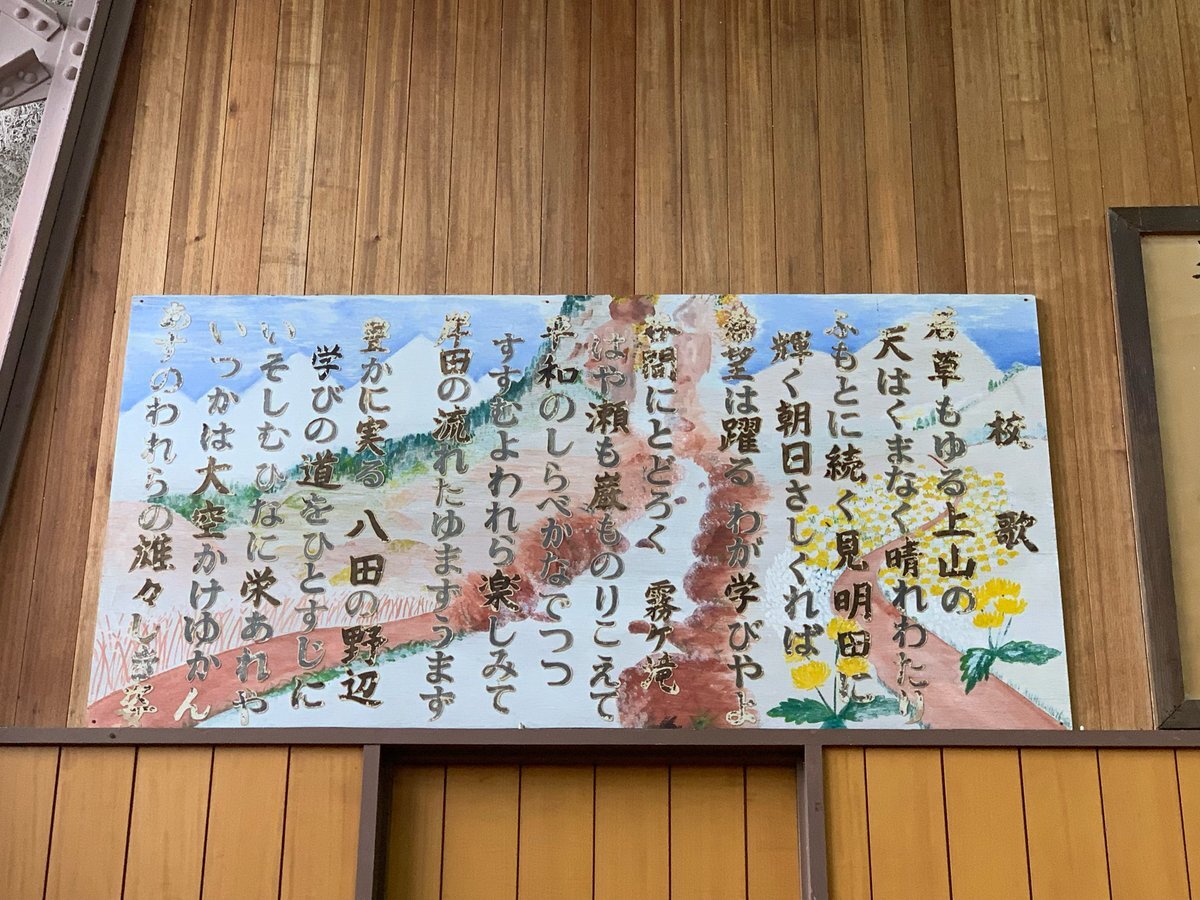 校歌
若草もゆる上山の
天はくまなく晴れわたり
ふもとに続く見明田に
輝く朝日さしくれば
希望は躍る わが学びやよ
谷間にとどろく 霧ケ滝
はや瀬も巌ものりこえて
平和のしらべかなでつつ
すすむよわれら楽しみて
岸田の流れたゆまずうまず
豊かに実る 八田の野辺
学びの道をひとすじに
いそしむひなに栄あれや
いつかは大空かけゆかん
あすのわれらの雄々しき姿